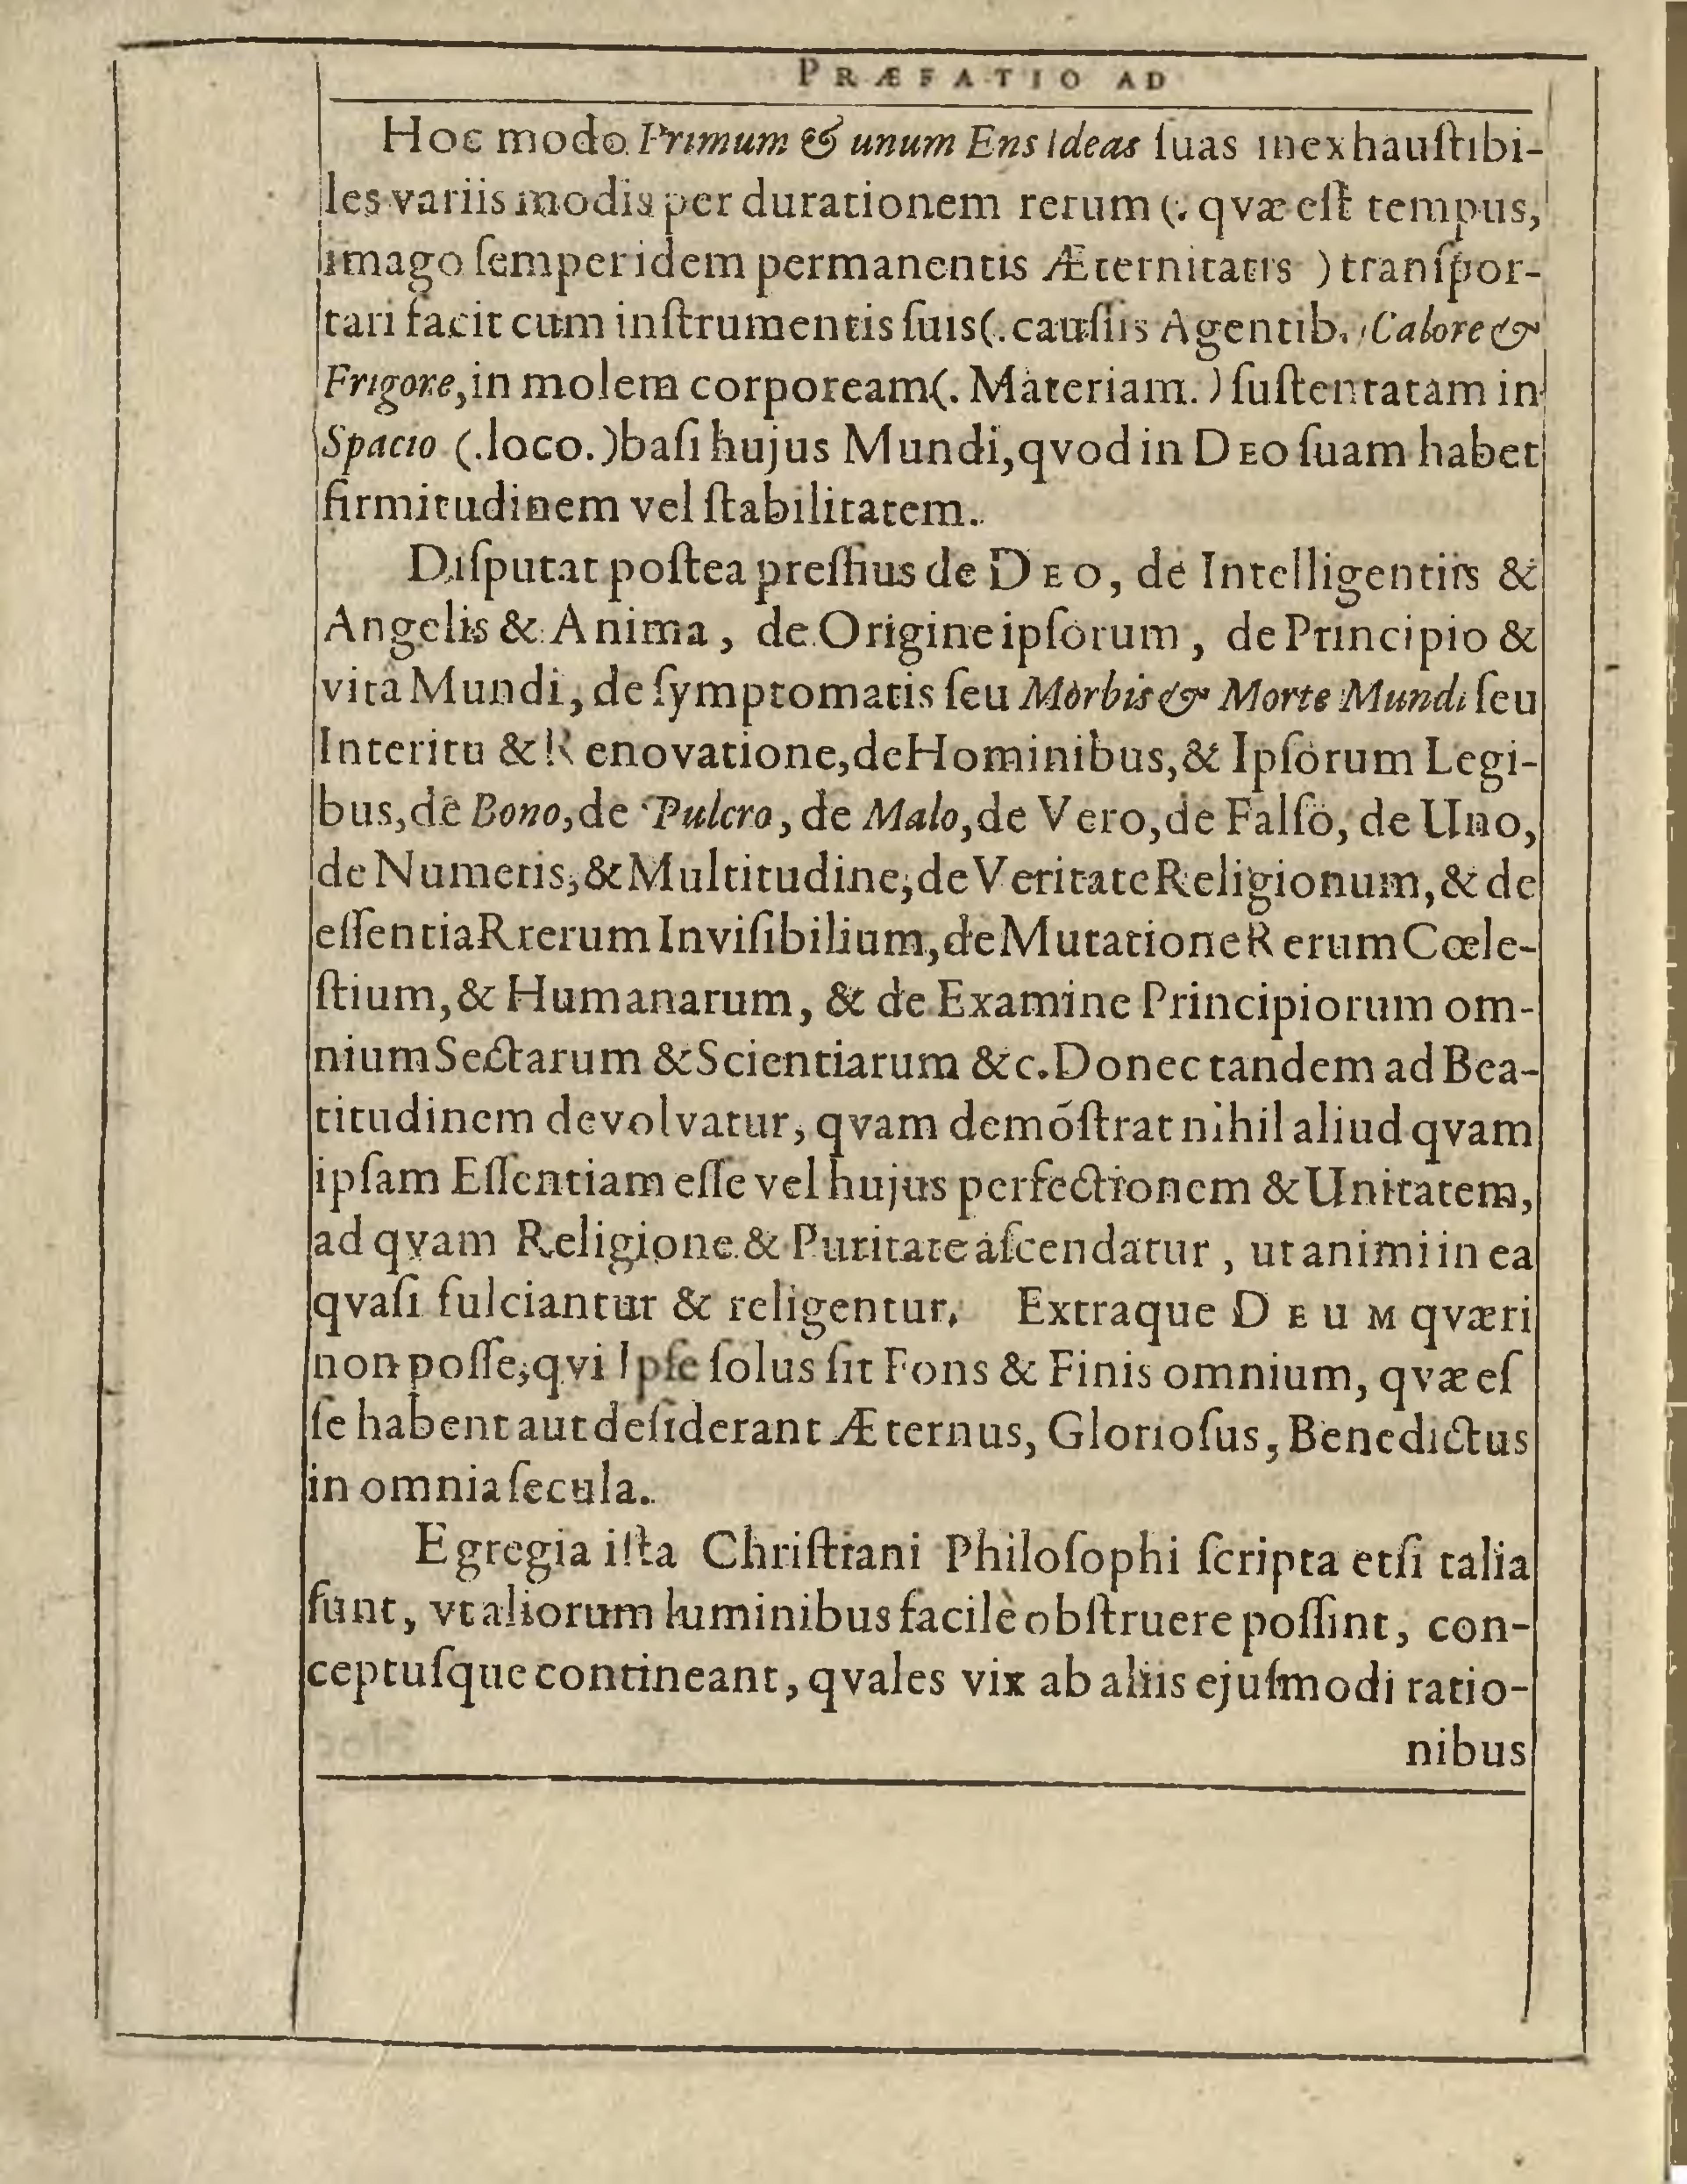 PRÆFATIO AD
Hoc modo Primum & unum Ens Ideas ſuas inexhauſtibi-
les variis modis per durationem rerum (. qvæ eſt tempus,
imago ſemper idem permanentis Æternitatis ) tranſpor-
tari facit cum inſtrumentis ſuis (. cauſſis Agentib. Calore &
Frigore, in molem corpoream (. Materiam. ) ſuſtentatam in
Spacio (. loco. ) baſi hujus Mundi, qvod in DEO ſuam habet
firmitudinem vel ſtabilitatem.
Diſputat poſtea preſſius de DEO, de Intelligentiis &
Angelis & Anima, de Origine ipſorum, de Principio &
vita Mundi, de ſymptomatis ſeu Morbis & Morte Mundi ſeu
Interitu & Renovatione, de Hominibus, & Ipſorum Legi-
bus, de Bono, de Pulcro, de Malo, de Vero, de Falſo, de Uno,
de Numeris, & Multitudine, de Veritate Religionum, & de
eſſentia Rrerum Inviſibilium, de Mutatione Rerum Cœle-
ſtium, & Humanarum, & de Examine Principiorum om-
nium Sectarum & Scientiarum &c. Donec tandem ad Bea-
titudinem devolvatur, qvam demóſtrat nihil aliud qvam
ipſam Eſſentiam eſſe vel hujus perfectionem & Unitatem,
ad qvam Religione & Puritate aſcendatur, ut animi in ea
qvaſi fulciantur & religentur. Extraque DEUM qværi
non poſſe, qvi Ipſe ſolus ſit Fons & Finis omnium, qvæ eſ
ſe habent aut deſiderant Æternus, Glorioſus, Benedictus
in omnia ſecula.
Egregia iſta Chriſtiani Philoſophi ſcripta etſi talia
ſunt, vt aliorum luminibus facilè obſtruere poſſint, con-
ceptuſque contineant, qvales vix ab aliis ejuſmodi ratio-
nibus